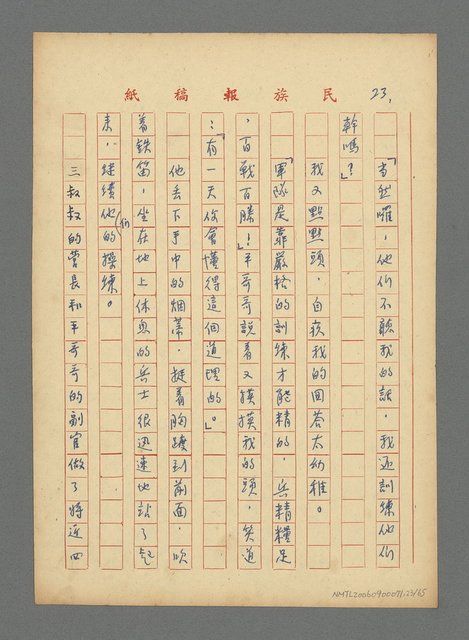 民族報稿紙
23,
「當然囉，他們不聽我的話，我還訓練他們
幹嗎？」
我又點點頭，自嘆我的回答太幼稚。
「軍隊是靠嚴格的訓練才能精的，兵精糧足
，百戰百勝！」平哥哥說着又摸摸我的頭，笑道
：「有一天你會懂得這個道理的。」
他丟下手中的烟蒂，挺着胸踱到前面，吹
着鉄笛，坐在地上休息的兵士很迅速地站了起
來，繼續他(們)的操練。
三叔叔的營長和平哥哥的副官做了將近四
NMTL20060900071,23/65